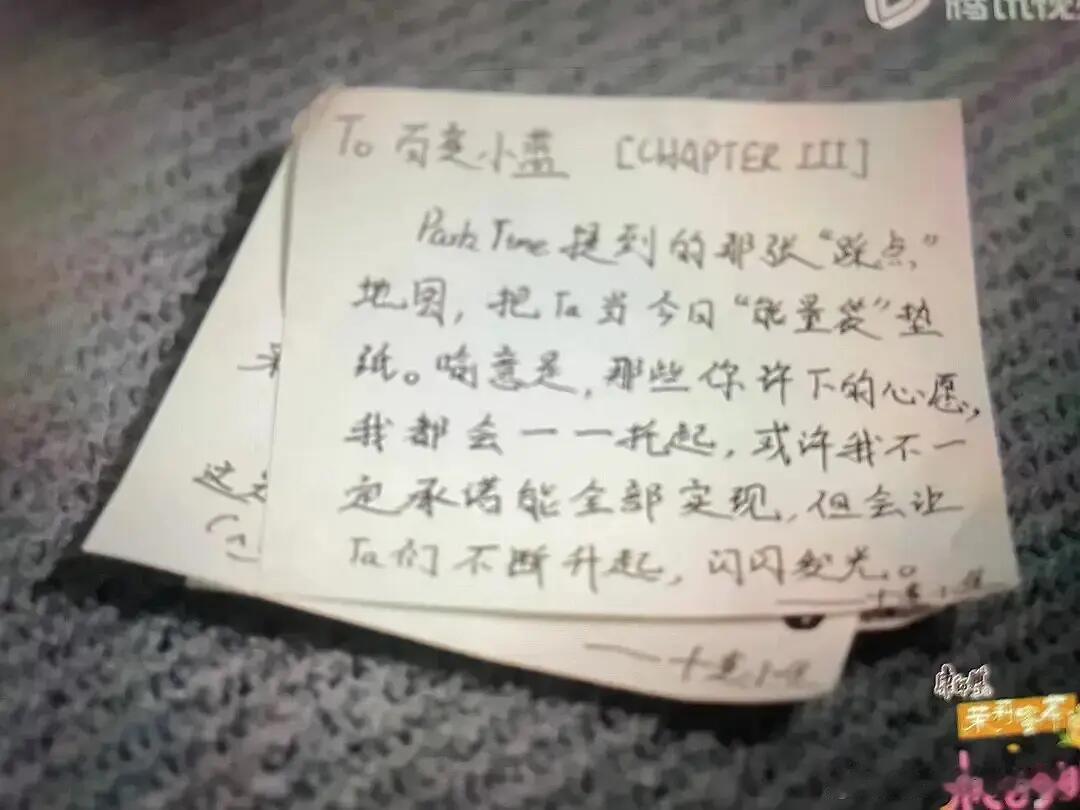 腾讯视
To 百变小蓝 [CHAPTER III]
Park Time 提到的那张“踩点”
地图,把Ta当今日“能量袋”垫
纸。喻意是,那些你许下的心愿,
我都会一一托起,或许我不一
定承诺能全部实现,但会让
Ta们不断升起,闪闪发光。
康师傅
茉莉